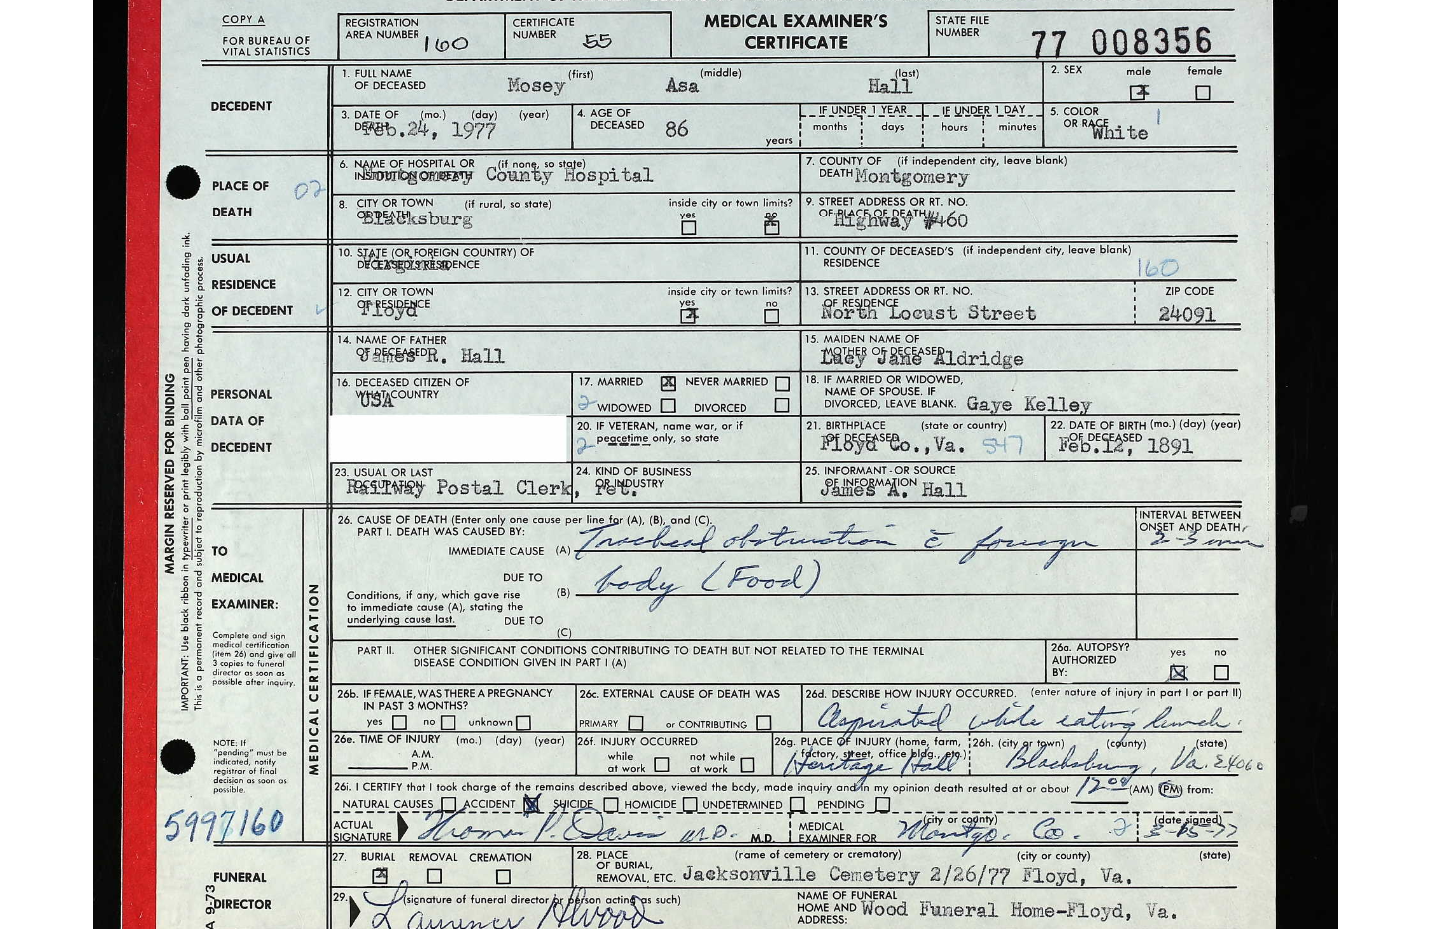 COPY A
FOR BUREAU OF
VITAL STATISTICS
REGISTRATION
AREA NUMBER 160
CERTIFICATE
NUMBER 55
MEDICAL EXAMINER'S
CERTIFICATE
STATE FILE
NUMBER 77 008356
DECEDENT
1. FULL NAME (first) (middle) (last)
OF DECEASED Mosey Asa Hall
2. SEX male female
3. DATE OF (mo.) (day) (year)
DEATH Feb.24, 1977
4. AGE OF
DECEASED 86 years
IF UNDER 1 YEAR IF UNDER 1 DAY
months days hours minutes
5. COLOR
OR RACE White
PLACE OF
DEATH
02
6. NAME OF HOSPITAL OR (if none, so state)
INSTITUTION OF DEATH Montgomery County Hospital
7. COUNTY OF (if independent city, leave blank)
DEATH Montgomery
8. CITY OR TOWN (if rural, so state) inside city or town limits?
OF DEATH Blacksburg yes no
9. STREET ADDRESS OR RT. NO.
OF PLACE OF DEATH Highway #460
USUAL
RESIDENCE
OF DECEDENT
10. STATE (OR FOREIGN COUNTRY) OF
DECEASED'S RESIDENCE Virginia
11. COUNTY OF DECEASED'S (if independent city, leave blank)
RESIDENCE 160
12. CITY OR TOWN inside city or town limits?
OF RESIDENCE Floyd yes no
13. STREET ADDRESS OR RT. NO. ZIP CODE
OF RESIDENCE North Locust Street 24091
PERSONAL
DATA OF
DECEDENT
14. NAME OF FATHER
OF DECEASED James R. Hall
15. MAIDEN NAME OF
MOTHER OF DECEASED Lucy Jane Aldridge
16. DECEASED CITIZEN OF
WHAT COUNTRY USA
17. MARRIED NEVER MARRIED
2 WIDOWED DIVORCED
18. IF MARRIED OR WIDOWED,
NAME OF SPOUSE. IF
DIVORCED, LEAVE BLANK. Gaye Kelley
20. IF VETERAN, name war, or if
2 peacetime only, so state
21. BIRTHPLACE (state or country)
OF DECEASED Floyd Co.,Va. 547
22. DATE OF BIRTH (mo.) (day) (year)
OF DECEASED Feb.12, 1891
23. USUAL OR LAST
OCCUPATION Railway Postal Clerk, ret.
24. KIND OF BUSINESS
OR INDUSTRY
25. INFORMANT - OR SOURCE
OF INFORMATION James A. Hall
MARGIN RESERVED FOR BINDING
IMPORTANT: Use black ribbon in typewriter or print legibly with ball point pen having dark unfading ink.
This is a permanent record and subject to reproduction by microfilm and other photographic process.
TO
MEDICAL
EXAMINER:
Complete and sign
medical certification
(item 26) and give all
3 copies to funeral
director as soon as
possible after inquiry.
NOTE: If
"pending" must be
indicated, notify
registrar of final
decision as soon as
possible.
5997160
MEDICAL CERTIFICATION
26. CAUSE OF DEATH (Enter only one cause per line for (A), (B), and (C).
PART I. DEATH WAS CAUSED BY:
INTERVAL BETWEEN
ONSET AND DEATH
IMMEDIATE CAUSE (A) Tracheal obstruction c̄ foreign 2-3 min
DUE TO
(B) body (Food)
Conditions, if any, which gave rise
to immediate cause (A), stating the
underlying cause last. DUE TO
(C)
PART II. OTHER SIGNIFICANT CONDITIONS CONTRIBUTING TO DEATH BUT NOT RELATED TO THE TERMINAL
DISEASE CONDITION GIVEN IN PART I (A)
26a. AUTOPSY? yes no
AUTHORIZED
BY:
26b. IF FEMALE, WAS THERE A PREGNANCY
IN PAST 3 MONTHS?
yes no unknown
26c. EXTERNAL CAUSE OF DEATH WAS
PRIMARY or CONTRIBUTING
26d. DESCRIBE HOW INJURY OCCURRED. (enter nature of injury in part I or part II)
Aspirated while eating lunch.
26e. TIME OF INJURY (mo.) (day) (year)
A.M.
P.M.
26f. INJURY OCCURRED
while not while
at work at work
26g. PLACE OF INJURY (home, farm,
factory, street, office bldg., etc.)
Heritage Hall
26h. (city or town) (county) (state)
Blacksburg, Va. 24060
26i. I CERTIFY that I took charge of the remains described above, viewed the body, made inquiry and in my opinion death resulted at or about 12:00 (AM) (PM) from:
NATURAL CAUSES ACCIDENT SUICIDE HOMICIDE UNDETERMINED PENDING
ACTUAL
SIGNATURE Thomas P. Davis M.D. M.D.
MEDICAL (city or county) (date signed)
EXAMINER FOR Montgo. Co. 2
FUNERAL
DIRECTOR
A 9-73
27. BURIAL REMOVAL CREMATION
28. PLACE (name of cemetery or crematory) (city or county) (state)
OF BURIAL,
REMOVAL, ETC. Jacksonville Cemetery 2/26/77 Floyd, Va.
29. (signature of funeral director or person acting as such)
NAME OF FUNERAL
HOME AND Wood Funeral Home-Floyd, Va.
ADDRESS: